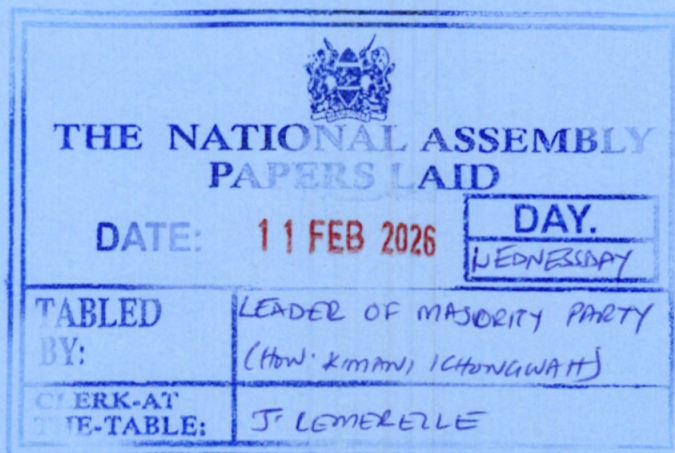 THE NATIONAL ASSEMBLY
PAPERS LAID
DATE: 11 FEB 2026
DAY.
WEDNESDAY
TABLED
BY:
LEADER OF MAJORITY PARTY
(HON. KIMANI ICHUNGWAH)
CLERK-AT
THE-TABLE:
J. LEMERELLE